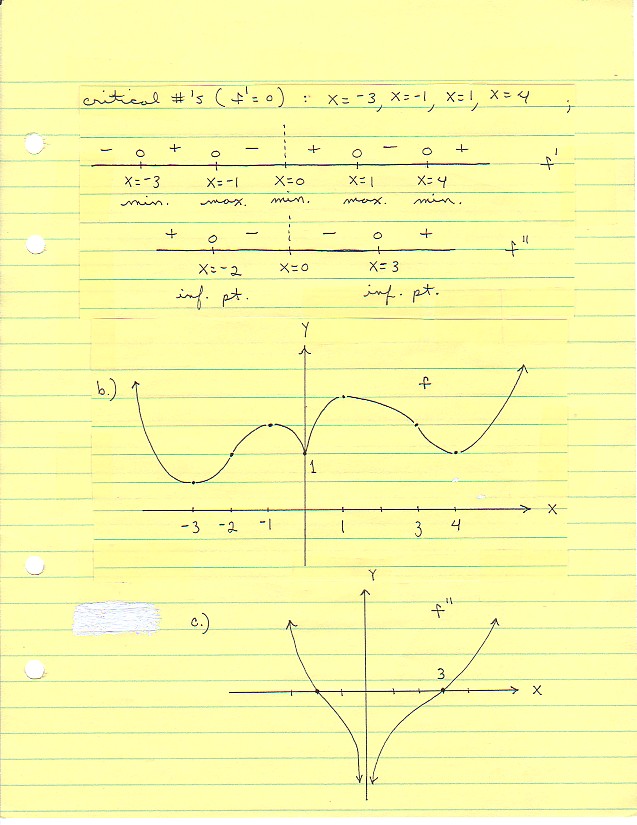 critical #'s (f'=0) : x=-3, x=-1, x=1, x=4 ;
- 0 + 0 - + 0 - 0 + f'
x=-3 x=-1 x=0 x=1 x=4
min. max. min. max. min.
+ 0 - - 0 + f"
x=-2 x=0 x=3
inf. pt. inf. pt.
Y
b.) f
1
X
-3 -2 -1 1 3 4
Y
c.) f"
3
X